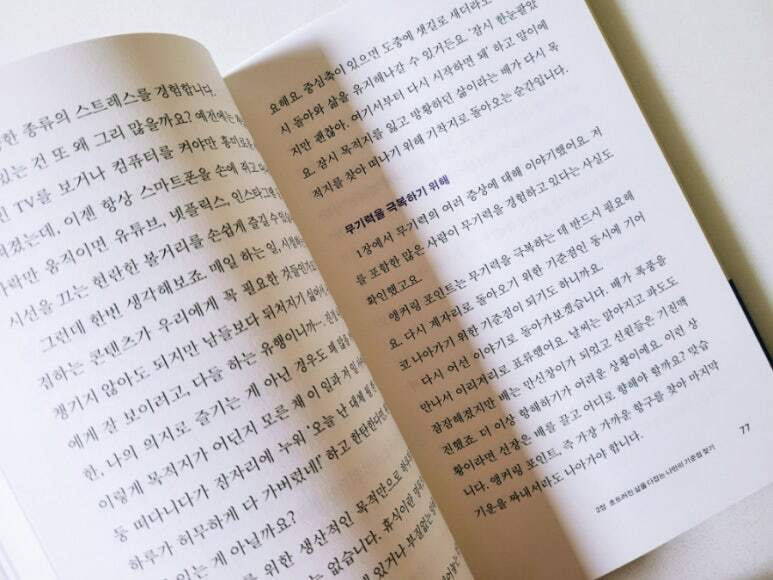 한 종류의 스트레스를 경험합니다.
있는 건 또 왜 그리 많을까요? 예전에는
TV를 보거나 컴퓨터를 켜야만
졌는데, 이젠 항상 스마트폰을 손에 쥐고
락만 움직이면 유튜브, 넷플릭스, 인스타그램
시선을 끄는 현란한 볼거리를 손쉽게 즐길 수
그런데 한번 생각해보죠. 매일 하는 일,
접하는 콘텐츠가 우리에게 꼭 필요한 것들인가요?
챙기지 않아도 되지만 남들보다 뒤처지기 싫어서,
에게 잘 보이려고, 다들 하는 유행이니까….
한, 나의 의지로 즐기는 게 아닌 경우도 꽤 많을
이렇게 목적지가 어딘지 모른 채 이 일과 저 일
동 떠다니다가 잠자리에 누워 '오늘 난 대체 뭘
하루가 허무하게 다 가버렸네!' 하고 한탄한다면,
있는 게 아닐까요?
를 위한 생산적인 목적만으로 하루
는 없습니다. 휴식이란 명목
있거나 부질없는
요해요. 중심축이 있으면 도중에 샛길로 새더라도
시 돌아와 삶을 유지해나갈 수 있거든요. '잠시 한눈팔았
지만 괜찮아. 여기서부터 다시 시작하면 돼' 하고 말이에
요. 잠시 목적지를 잃고 방황하던 삶이라는 배가 다시 목
적지를 찾아 떠나기 위해 기착지로 돌아오는 순간입니다.
무기력을 극복하기 위해
1장에서 무기력의 여러 증상에 대해 이야기했어요. 저
를 포함한 많은 사람이 무기력을 경험하고 있다는 사실도
확인했고요.
앵커링 포인트는 무기력을 극복하는 데 반드시 필요해
요. 다시 제자리로 돌아오기 위한 기준점인 동시에 기어
코 나아가기 위한 기준점이 되기도 하니까요.
다시 어선 이야기로 돌아가보겠습니다. 배가 폭풍을
만나서 이리저리로 표류했어요. 날씨는 맑아지고 파도도
잠잠해졌지만 배는 만신창이가 되었고 선원들은 기진맥
진했죠. 더 이상 항해하기가 어려운 상황이에요. 이런 상
황이라면 선장은 배를 끌고 어디로 향해야 할까요? 맞습
니다. 앵커링 포인트, 즉 가장 가까운 항구를 찾아 마지막
기운을 짜내서라도 나아가야 합니다.
2장 흐트러진 삶을 다잡는 나만의 기준점 찾기
77